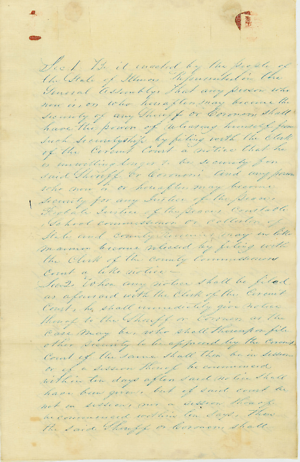 Sec 1. Be it enacted by the People of
the State of Illinois Represented in the
General Assembly That any person who
now is, or who hereafter may become the
security of any Sheriff or Coroner shall
have the power of releasing himself from
such Securityship by filing with the Clerk
of the Circuit Court a notice that he
is unwilling longer to be security for
said Sheriff or Coroner and any person
who now is or hereafter may become
security for any Justice of the Peace
Probate Justice of the Peace Constable
School commissioner or Collector of
State and County may in like
manner become released by filing with
the Clerk of the County Commissioners
Court a like notice
Sec 2. When any notice shall be filed
as aforesaid with the Clerk of the Circuit
Court, he shall immediately give notice
thereof to the Sheriff or Coroner as the
case may be, who shall thereupon file
other security to be approved by the Circuit
Court if the same shall then be in session
or if a session thereof be commenced
within ten days after said notice shall
have been given but if said court be
not in session, nor a session thereof
commenced within ten days, then
the said Sheriff or Coroner shall